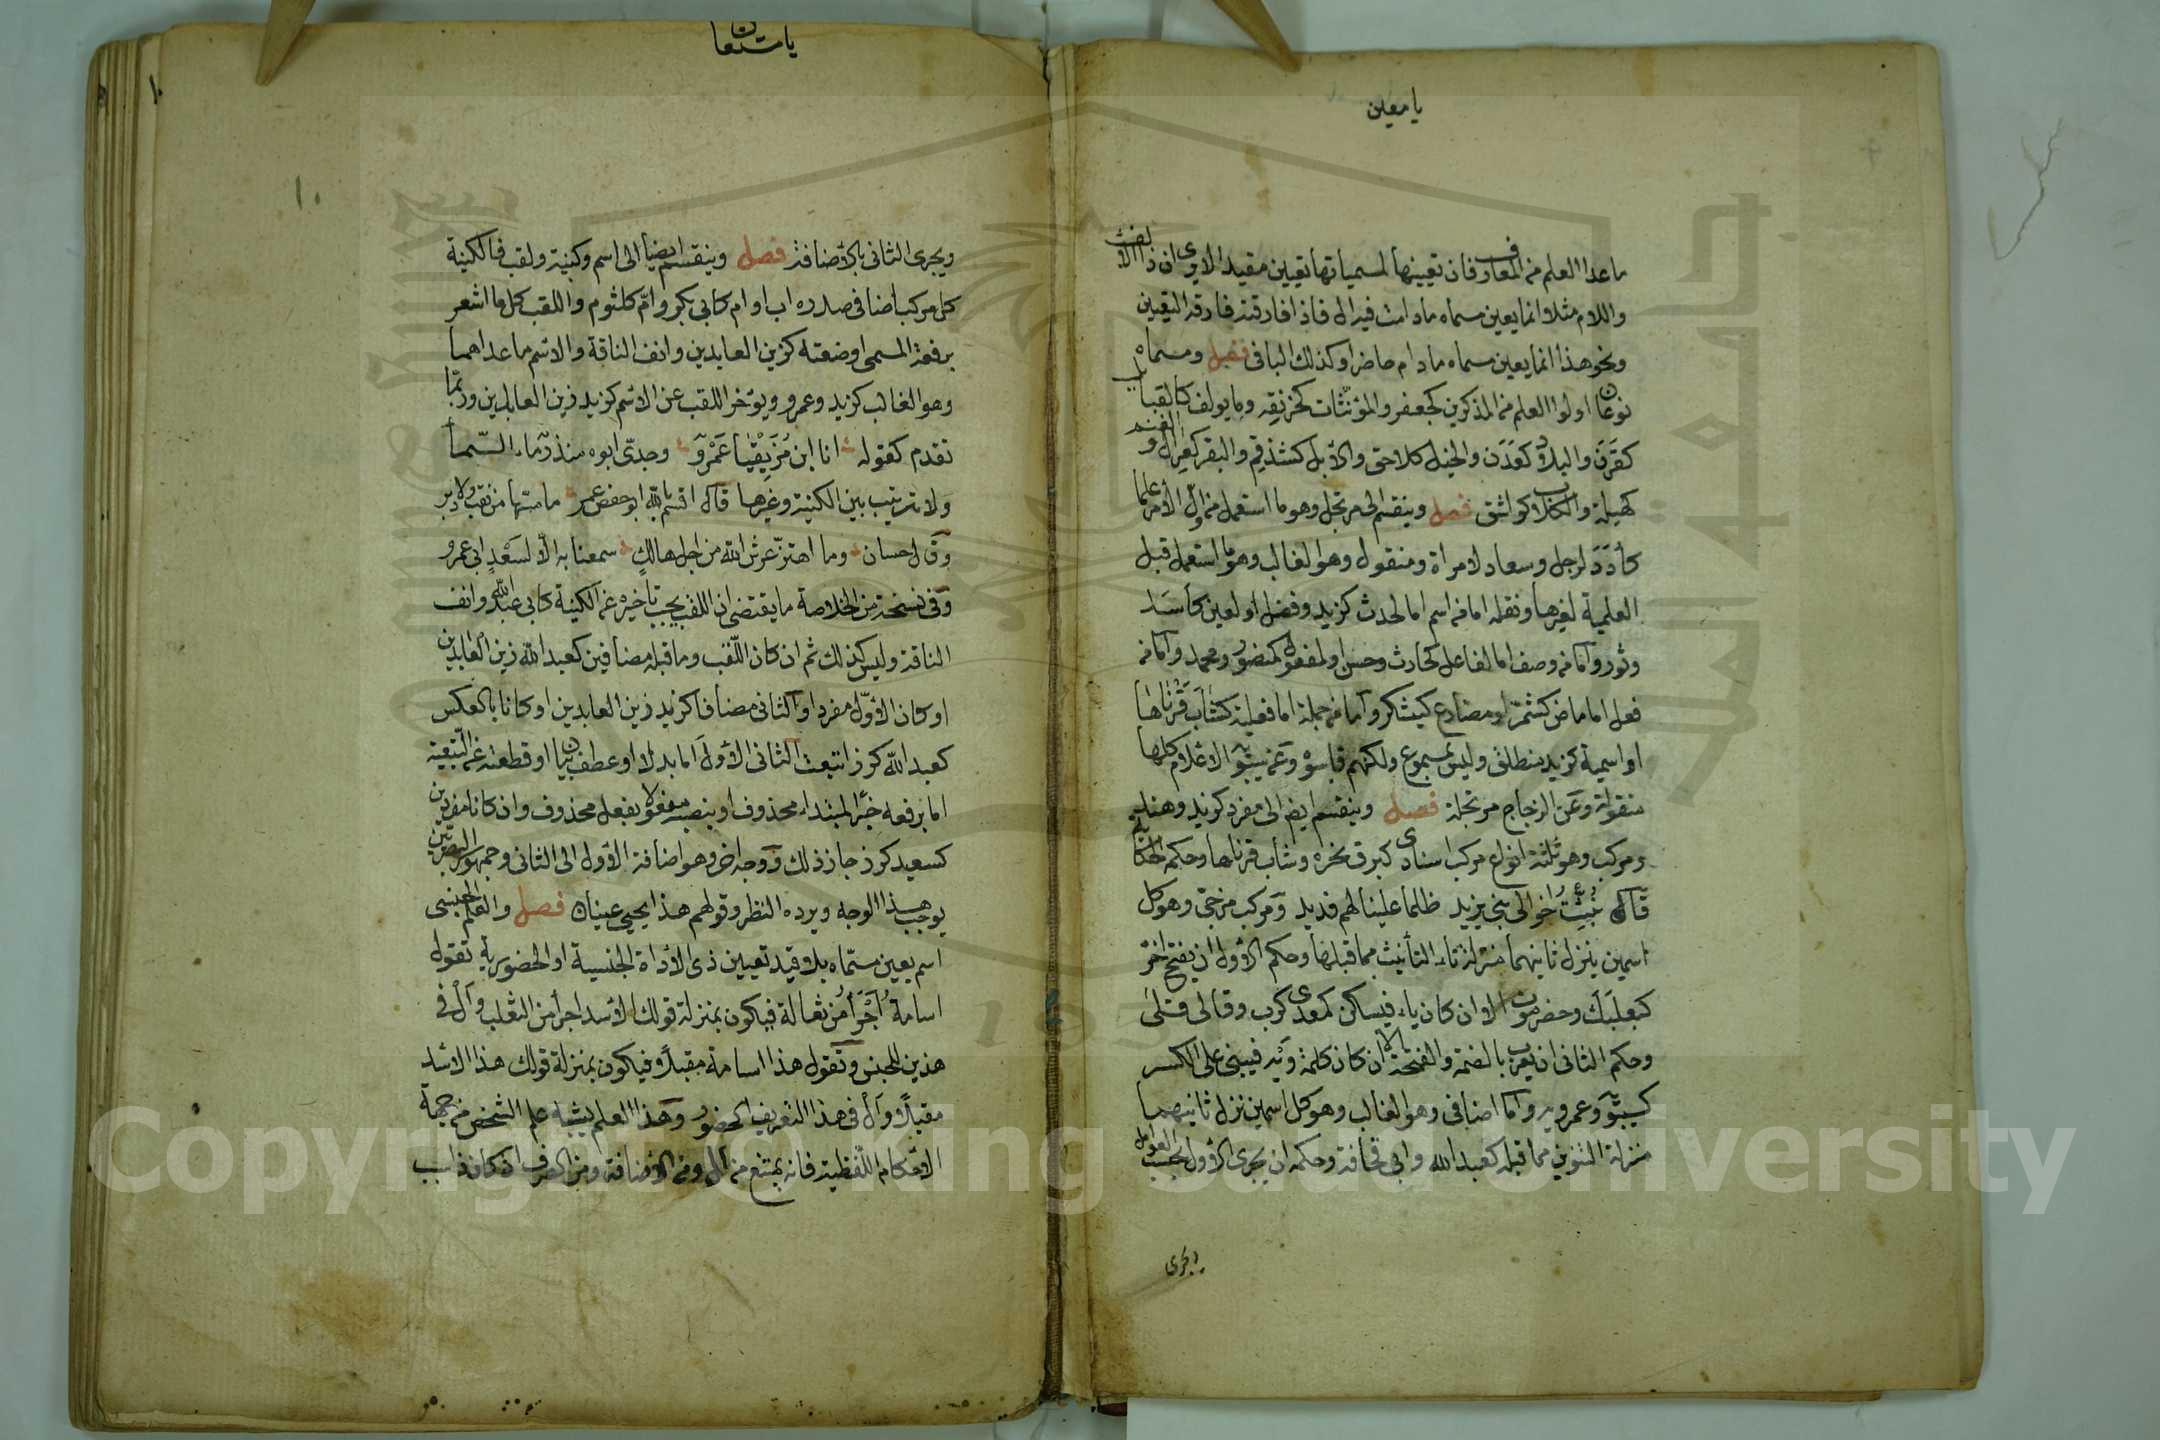 يا معين
ما عدا العلم من المعارف فان تعيينها لمسمياتها تعيين مقيد الا ترى ان ذا الالف
واللام مثلا وانما يعين مسماه ما دامت فيه ال فاذا فارقته فارقه التعيين
ونحو هذا انما يعين مسماه ما دام حاضرا وكذلك الباقي فصل ومسماه
نوعان اولوا العلم من المذكرين كجعفر والمؤنثات كخرنقه وما يولف كالقبايل
كقَرَن والبلاد كعَدَن والخيل كلاحق والابل كشذقم والبقر كعرار والغنم
كهيلة والكلاب كواشق فصل وينقسم الى مرتجل وهو ما استعمل من اول الامر علما
كأدَدَ لرجل وسعاد لامراة ومنقول وهو الغالب وهو ما استعمل قبل
العلمية لغيرها ونقله اما من اسم اما لحدث كزيد وفضل او لعين كأسَد
وثور واما من وصف اما لفاعل كحارث وحسن او لمفعول كمنصور ومحمد واما من
فعل اما ماض كشمّر او مضارع كيشكر واما من جملة اما فعلية كشابَ قَرْناها
او اسمية كزيد منطلق وليس بمسموع ولكنهم قاسوه وعن سيبويه الاعلام كلها
منقولة وعن الزجاج مرتجلة فصل وينقسم ايضا الى مفرد كزيد وهند
ومركب وهو ثلثة انواع مركب اسنادى كبرق نحره وشاب قرناها وحكمه الحكاية
قال نُبِّئتُ اخوالى بنى يزيد ظلما علينا لهم فديد ومركب مزجى وهو كل
اسمين ينزل ثانيهما منزلة تاء التأنيث مما قبلها وحكم الاول ان يفتح اخره
كبعلَبَكَ وحضرموت الا ان كان ياء فيسكن كمعدى كرب وقالى قلى
وحكم الثانى ان يعرب بالضمة والفتحة الا ان كان كلمة وَيْه فيبنى على الكسر
كسيبويه وعمرويه واما اضافى وهو الغالب وهو كل اسمين نزل ثانيهما
منزلة التنوين مما قبله كعبد الله وابى قحافة وحكمه ان يجرى الاول بحسب العوامل
ويجرى
١٠
ويجرى الثانى بالاضافة فصل وينقسم ايضا الى اسم وكنية ولقب فالكنية
كل مركب اضافى صدره اب او ام كابى بكر وامّ كلثوم واللقب كل ما اشعر
برفعة المسمى او ضعته كزين العابدين وانف الناقة والاسم ما عداهما
وهو الغالب كزيد وعمرو ويؤخر اللقب عن الاسم كزيد زين العابدين وربّما
تقدم كقوله انا ابن مُزَيقْيَا عَمْرٍو وجدّى ابوه منذر ماء السّما
ولا ترتيب بين الكنية وغيرها قال اقسم بالله ابو حفص عمر ما مسّها من نقب ولا دبر
وقال حسان وما اهتزّ عرش الله من اجل هالكٍ سمعنا به الّا لسَعْدٍ ابى عمرو
وفى نسخة من الخلاصة ما يقتضى ان اللقب يجب تأخيره عن الكنية كابى عبد الله وانف
الناقة وليس كذلك ثم ان كان اللّقب وما قبله مضافين كعبد الله زين العابدين
او كان الاوّل مفردا والثانى مضافا كزيد زين العابدين او كانا بالعكس
كعبد الله كرز اتبعت الثانى الاول اما بدلا او عطف بيان او قطعته عن التبعية
اما برفعه خبرا لمبتداء محذوف او بنصبه مفعولا بفعل محذوف وان كانا مفردين
كسعيد كرز جاز ذلك ووجه اخر وهو اضافة الاول الى الثانى وجمهور البصريّين
يوجب هذا الوجه ويرده النظر وقولهم هذا يحيى عينان فصل والعلم الجنسى
اسم يعين مسمّاه بلا قيد تعيين ذى الاداة الجنسية او الحضورية تقول
اسامة اُجْرَأُ من ثعالة فيكون بمنزلة قولك الاسد اجرأ من الثعلب وآلْ فى
هذين للجنس وتقول هذا اسامة مقبلًا فيكون بمنزلة قولك هذا الاسد
مقبلًا وألْ فى هذا التعريف الحضورى وهذا العلم يشبه علم الشخص من جهة
الاحكام اللّفظية فانه يمتنع من ال ومن الاضافة ومن الصرف ان كان ذا سبب